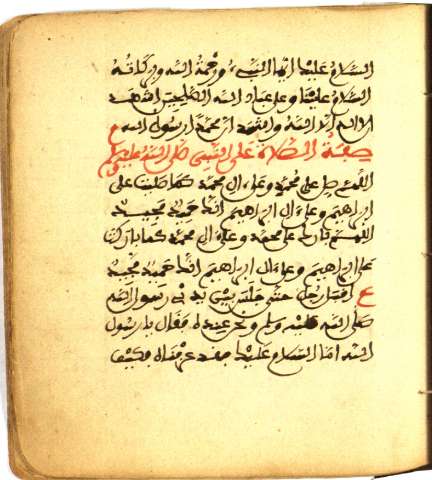 السلام عليك ايها النبيء ورحمة الله وبركاته
السلام علينا وعلى عباد الله الصلحين اشهد
ان لا اله الا الله واشهد ان محمدا رسول الله م
صفة الصلاة على النبي صلى الله عليه وسلم
اللهم صل على محمد وعلى ال محمد كما صليت على
ابرهيم وعلى ال ابرهيم انك حميد مجيد
اللهم بارك على محمد وعلى ال محمد كما باركت
على ابرهيم وعلى ال ابرهيم انك حميد مجيد
ع اقبل رجل حتى جلس بين يدي رسول الله
صلى الله عليه وسلم ونحن عنده فقال يا رسول
الله اما السلام عليك فقد عرفناه فكيف